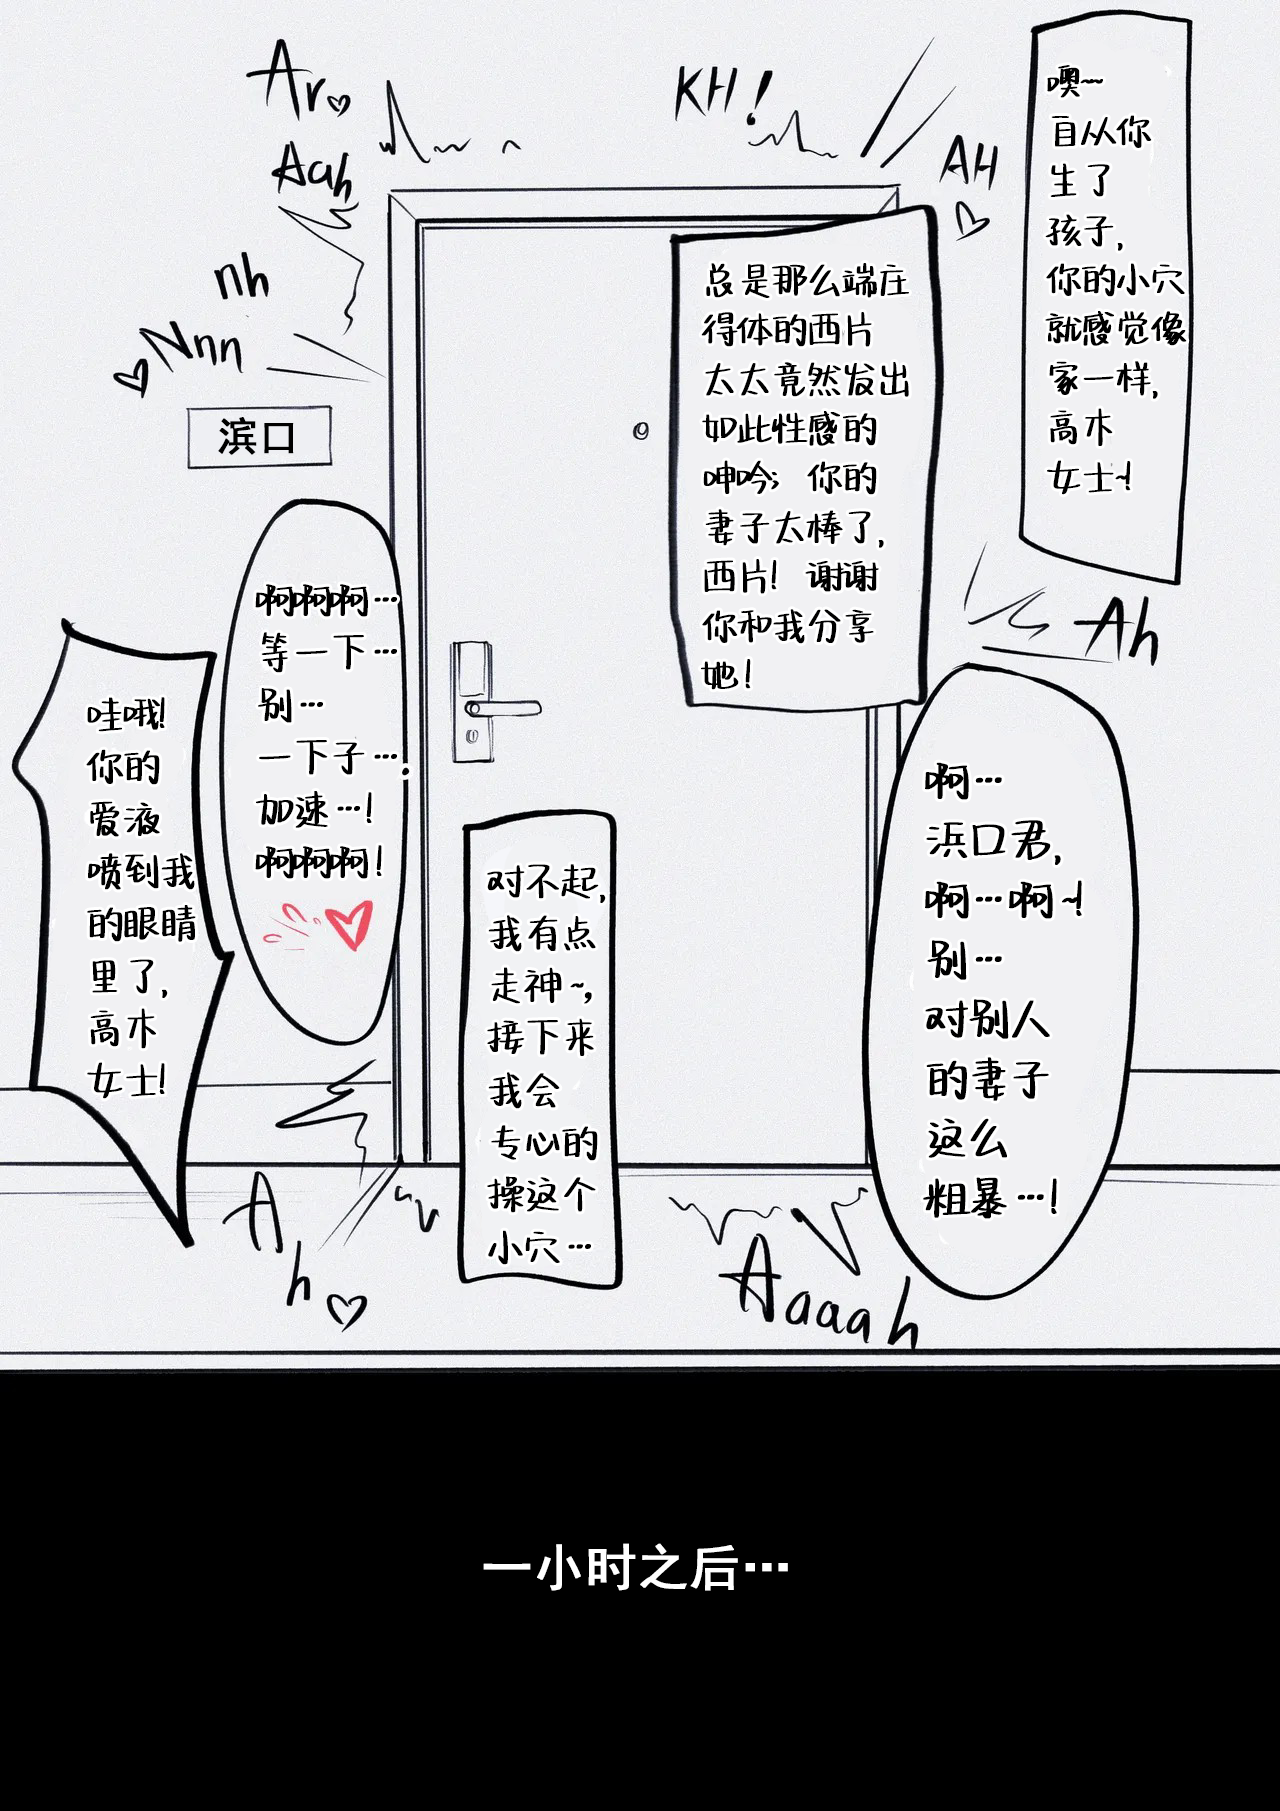 Ar♡
Aah
nh
Nnn
♡
KH!
AH
♡
噢~
自从你
生了
孩子,
你的小穴
就感觉像
家一样,
高木
女士~!
总是那么端庄
得体的西片
太太竟然发出
如此性感的
呻吟; 你的
妻子太棒了,
西片! 谢谢
你和我分享
她!
滨口
啊啊啊…
等一下…
别…
一下子…
加速…!
啊啊啊!
♡
哇哦!
你的
爱液
喷到我
的眼睛
里了,
高木
女士!
Ah
啊…
浜口君,
啊…啊~!
别…
对别人
的妻子
这么
粗暴…!
对不起,
我有点
走神~,
接下来
我会
专心的
操这个
小穴…
Ah♡
Aaaah
一小时之后…